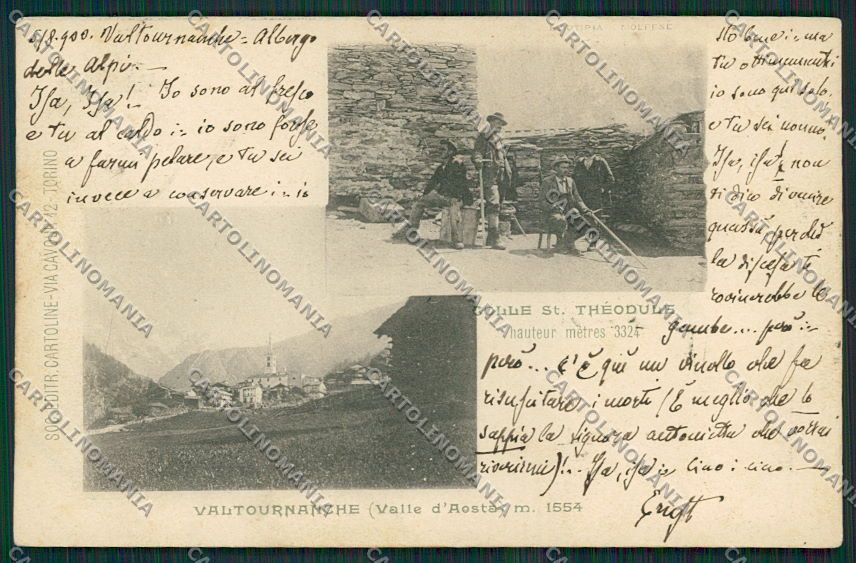 5/8.900. Valtournanche = Albergo
delle Alpi. —
Isa, Isa! Io sono al fresco
e tu al caldo i = io sono
a farmi pelare, e tu sei
invece a conservare i = io
sto bene i = ma
tu
io sono qui solo,
e tu sei
Isa, isa = non
ti dico di venire
quassù, perchè
la discesa ti
rovinerebbe le
gambe... però =
però... c'è qui un vinello che fa
risuscitare i morti (È meglio che lo
sappia la signora che
)!.. Isa, isa = ciao i ciao. —
STUDIA MOLFESE
COLLE St. THÉODULE
hauteur mètres 3324
SOC. EDITR. CARTOLINE - VIA CAVOUR 12 - TORINO
VALTOURNANCHE (Valle d'Aosta) m. 1554
CARTOLINOMANIA